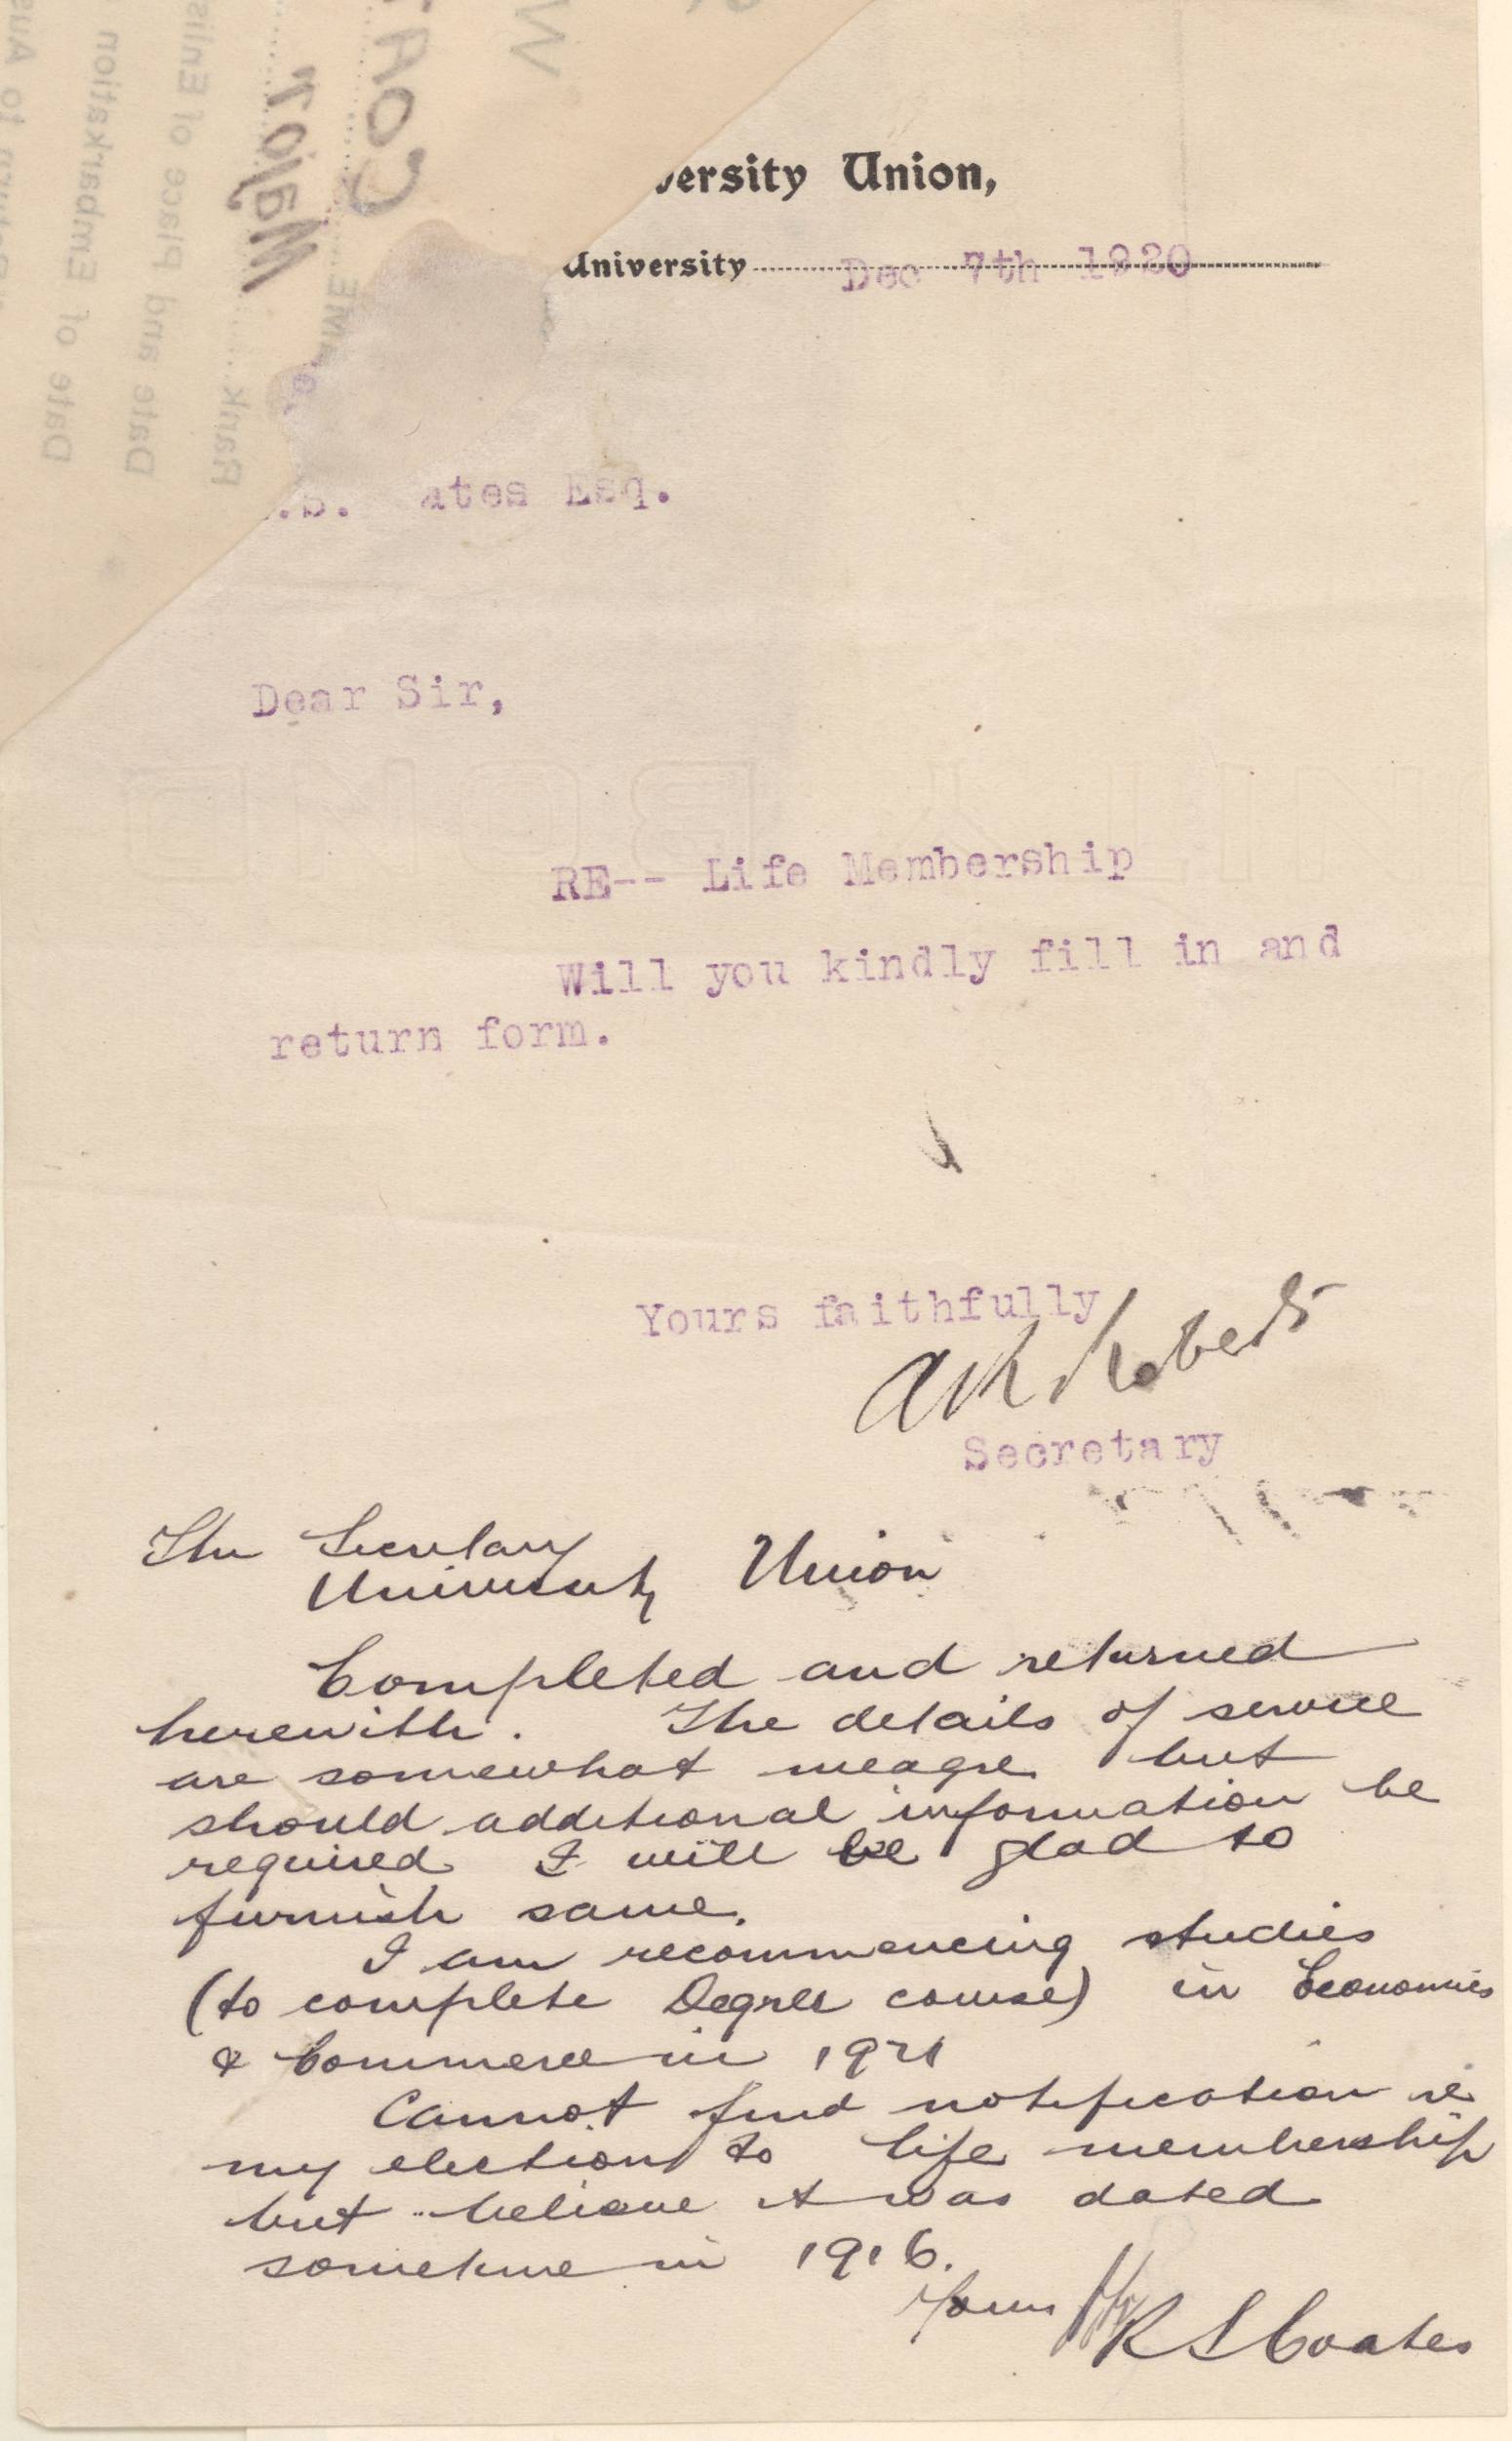 versity Union,
University Dec 7th 1920
.S. ates Esq.
Dear Sir,
RE-- Life Membership
Will you kindly fill in and
return form.
Yours faithfully
Roberts
Secretary
The Secretary
University Union
Completed and returned
herewith. The details of service
are somewhat meagre but
should additional information be
required I will be glad to
furnish same.
I am recommencing studies
(to complete Degree course) in Economics
& Commerce in 1921
Cannot find notification re
my election to life membership
but believe it was dated
sometime in 1916.
Yours
R S Coates
Major
Rank
Date and Place of Enlis
Date of Embarkation
NAME
COA